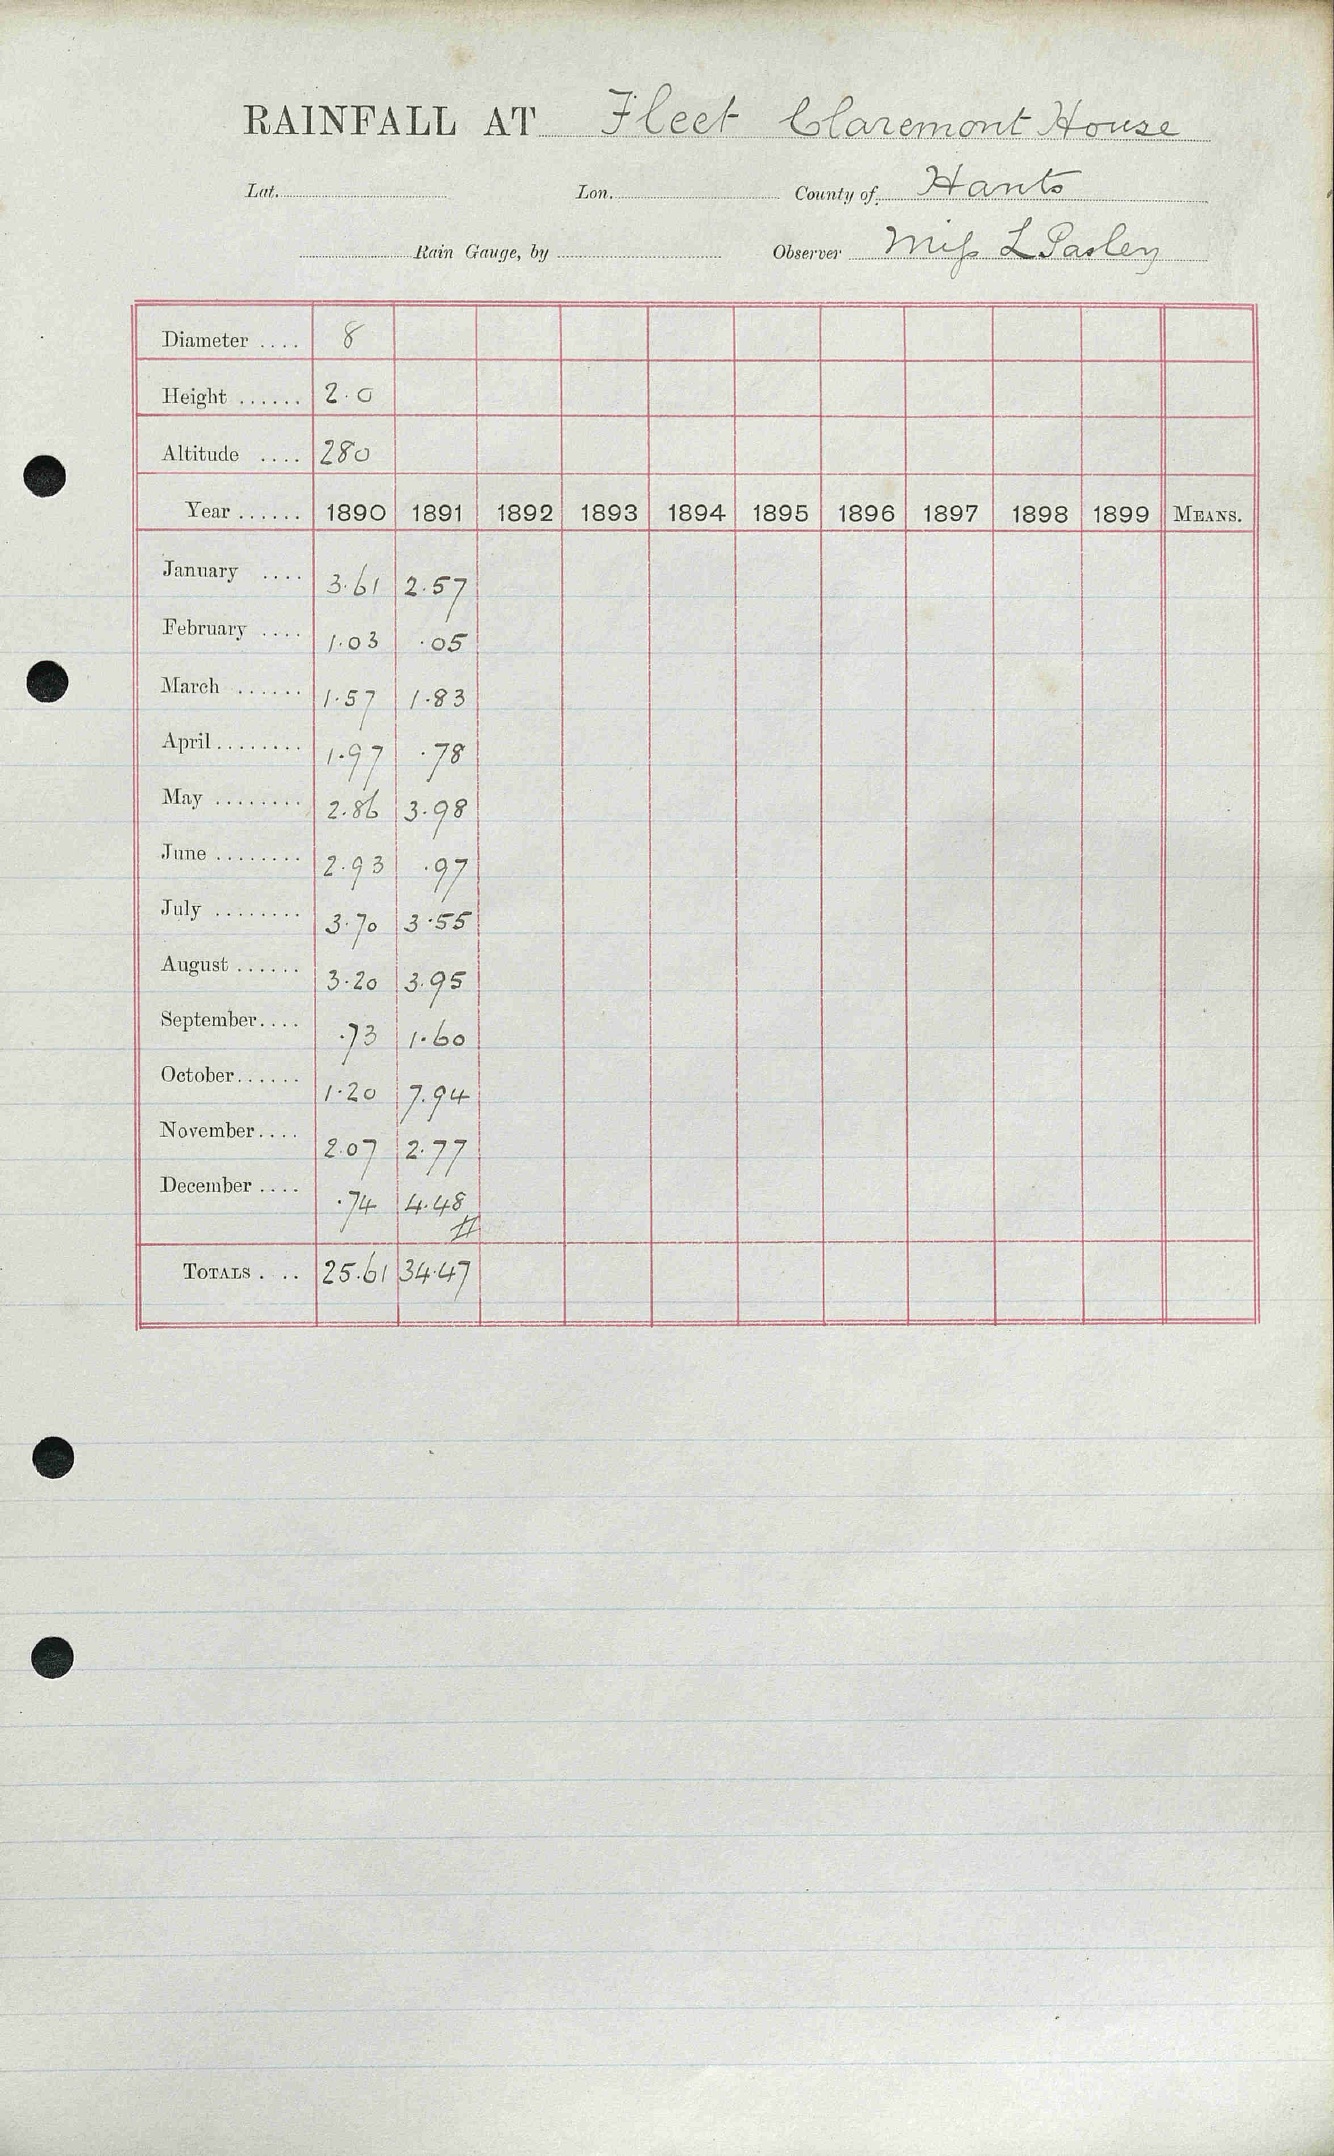 RAINFALL AT Fleet Claremont House
Lat. Lon. County of Hants
Rain Gauge, by Observer Miss L Pasley
Diameter .... 8
Height ...... 2.0
Altitude .... 280
Year ...... 1890 1891 1892 1893 1894 1895 1896 1897 1898 1899 MEANS.
January .... 3.61 2.57
February .... 1.03 .05
March ...... 1.57 1.83
April ........ 1.97 .78
May ........ 2.86 3.98
June ........ 2.93 .97
July ........ 3.70 3.55
August ...... 3.20 3.95
September.... .73 1.60
October...... 1.20 7.94
November.... 2.07 2.77
December .... .74 4.48
#
TOTALS . .. 25.61 34.47